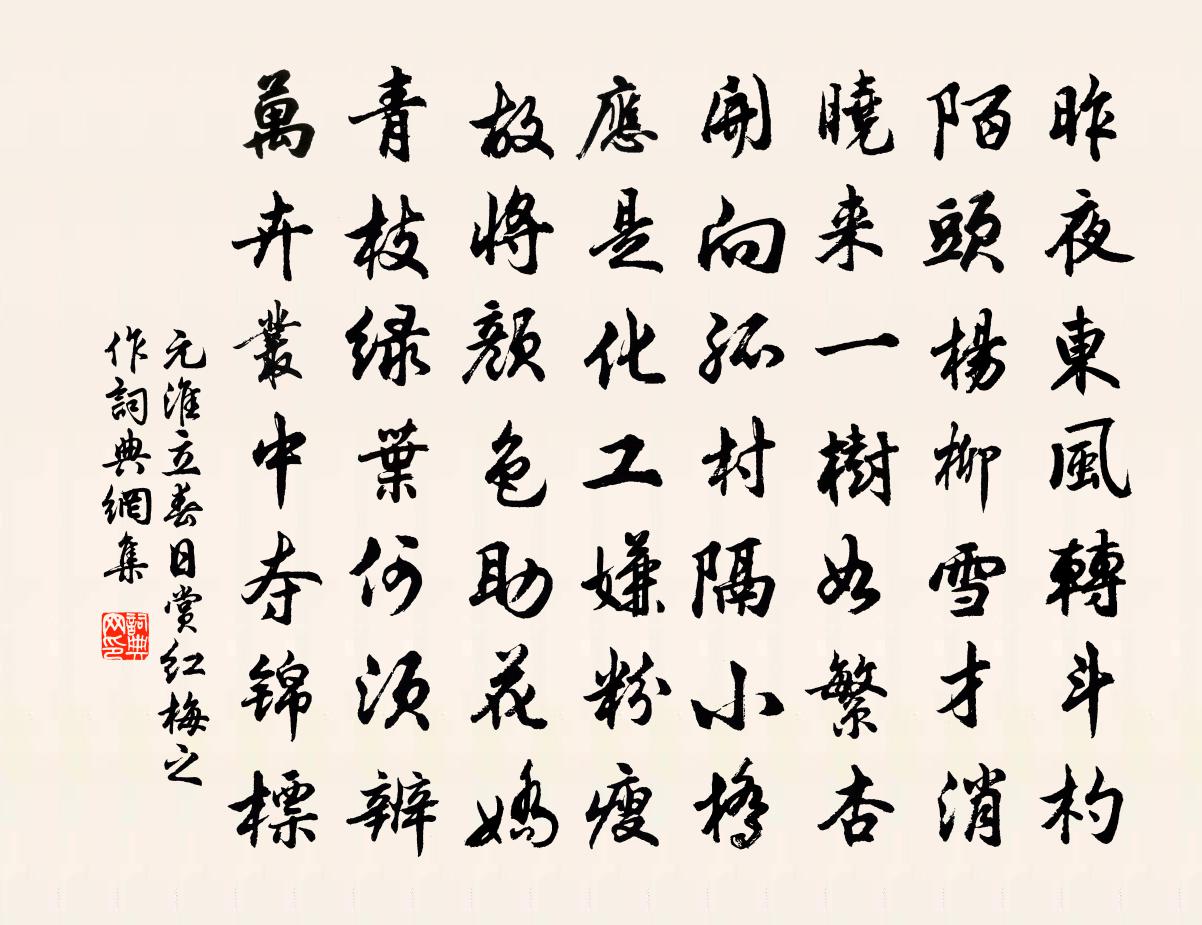 昨夜東風轉斗杓
陌頭楊柳雪才消
曉来一樹如繁杏
開向孤村隔小橋
應是化工嫌粉瘦
故將顏色助花嬌
青枝緑葉何須辨
萬卉叢中夺錦標
元淮立春日賞红梅之
作詞典網集
詞典
网印